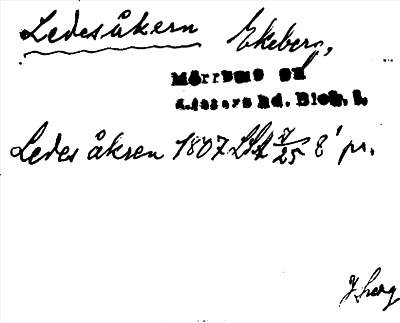 Ledesåkern Ekeberg,
Mörrums sn
Listers hd. Blek. l.
Ledes åkren 1807 LSA 8' pr.